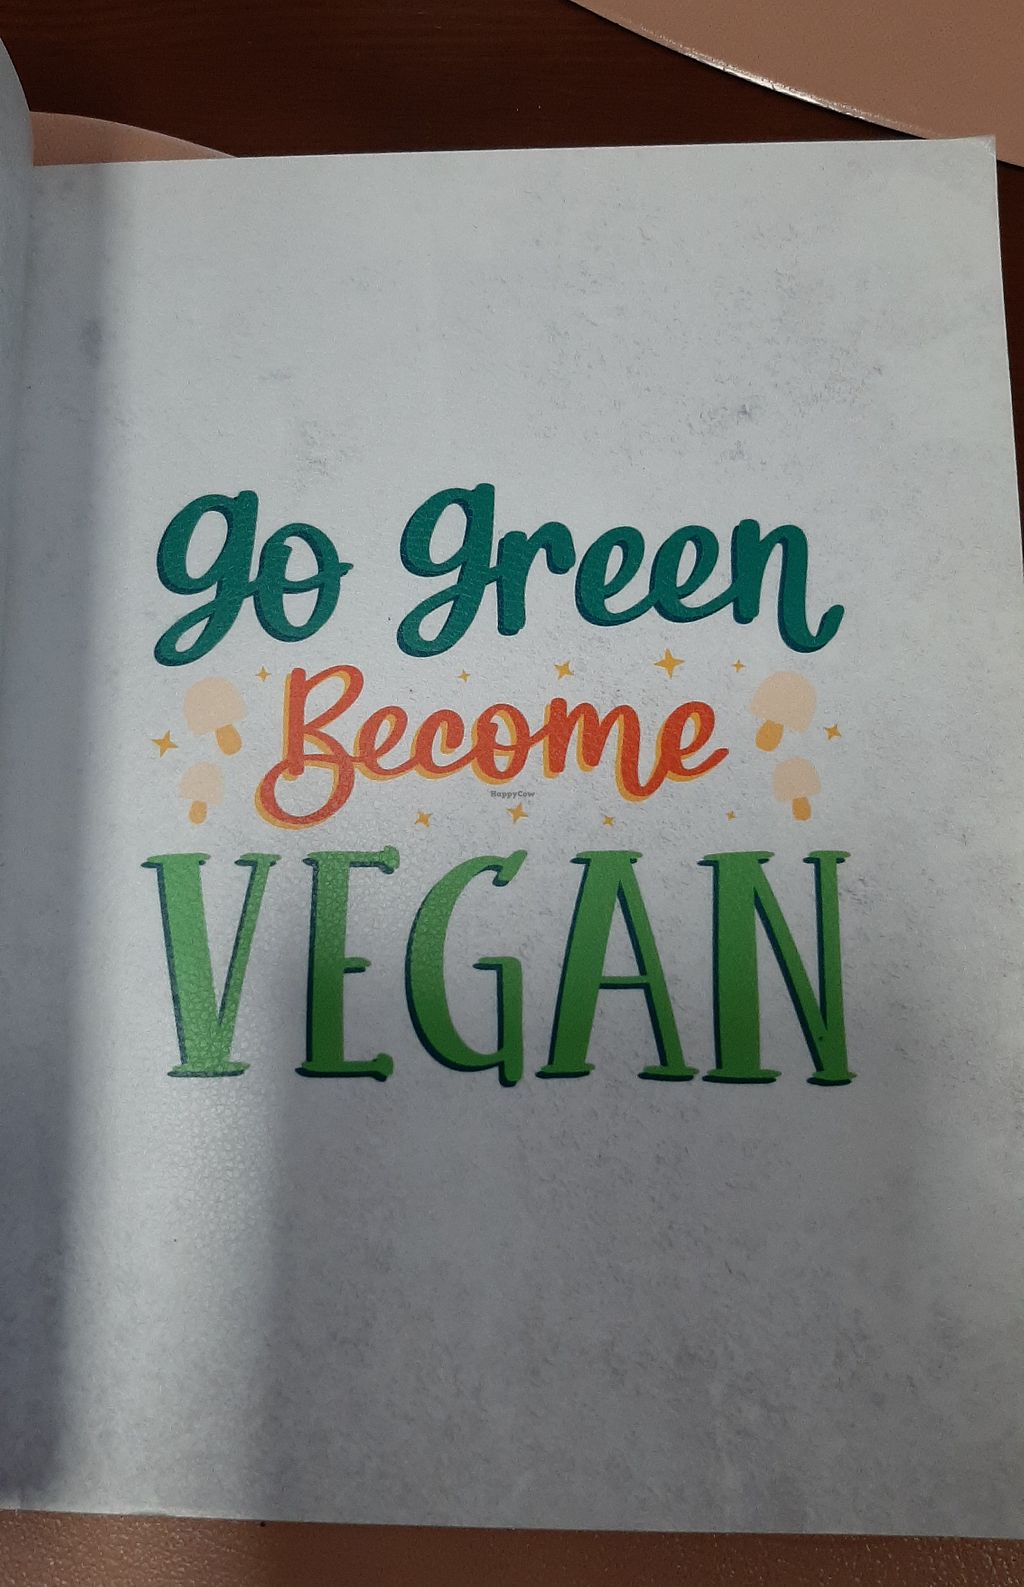 go green
Become
HappyCow
VEGAN